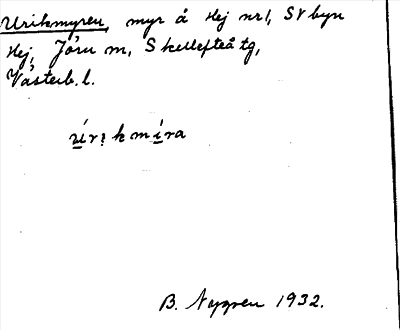 Urikmyren, myr å Hej nr 1, St byn
Hej, Jörn m, Skellefteå tg,
Västerb. l.
B. Nygren 1932.